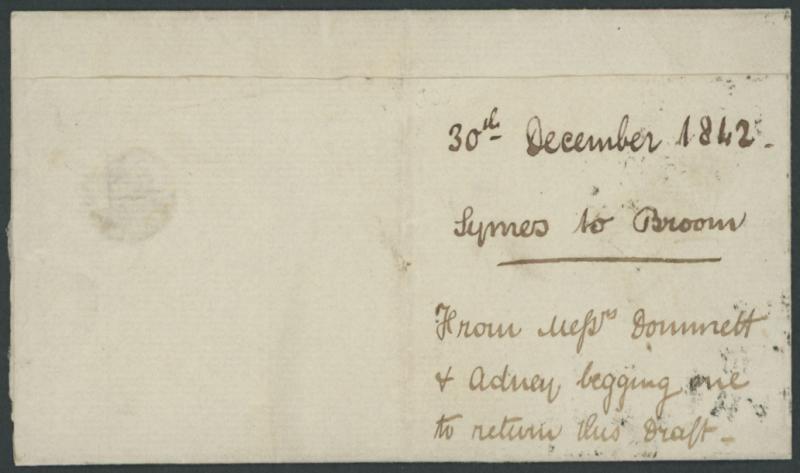 30th December 1842.
Symes to Broom
From Messrs Dommett
& Adney begging me
to return this Draft_